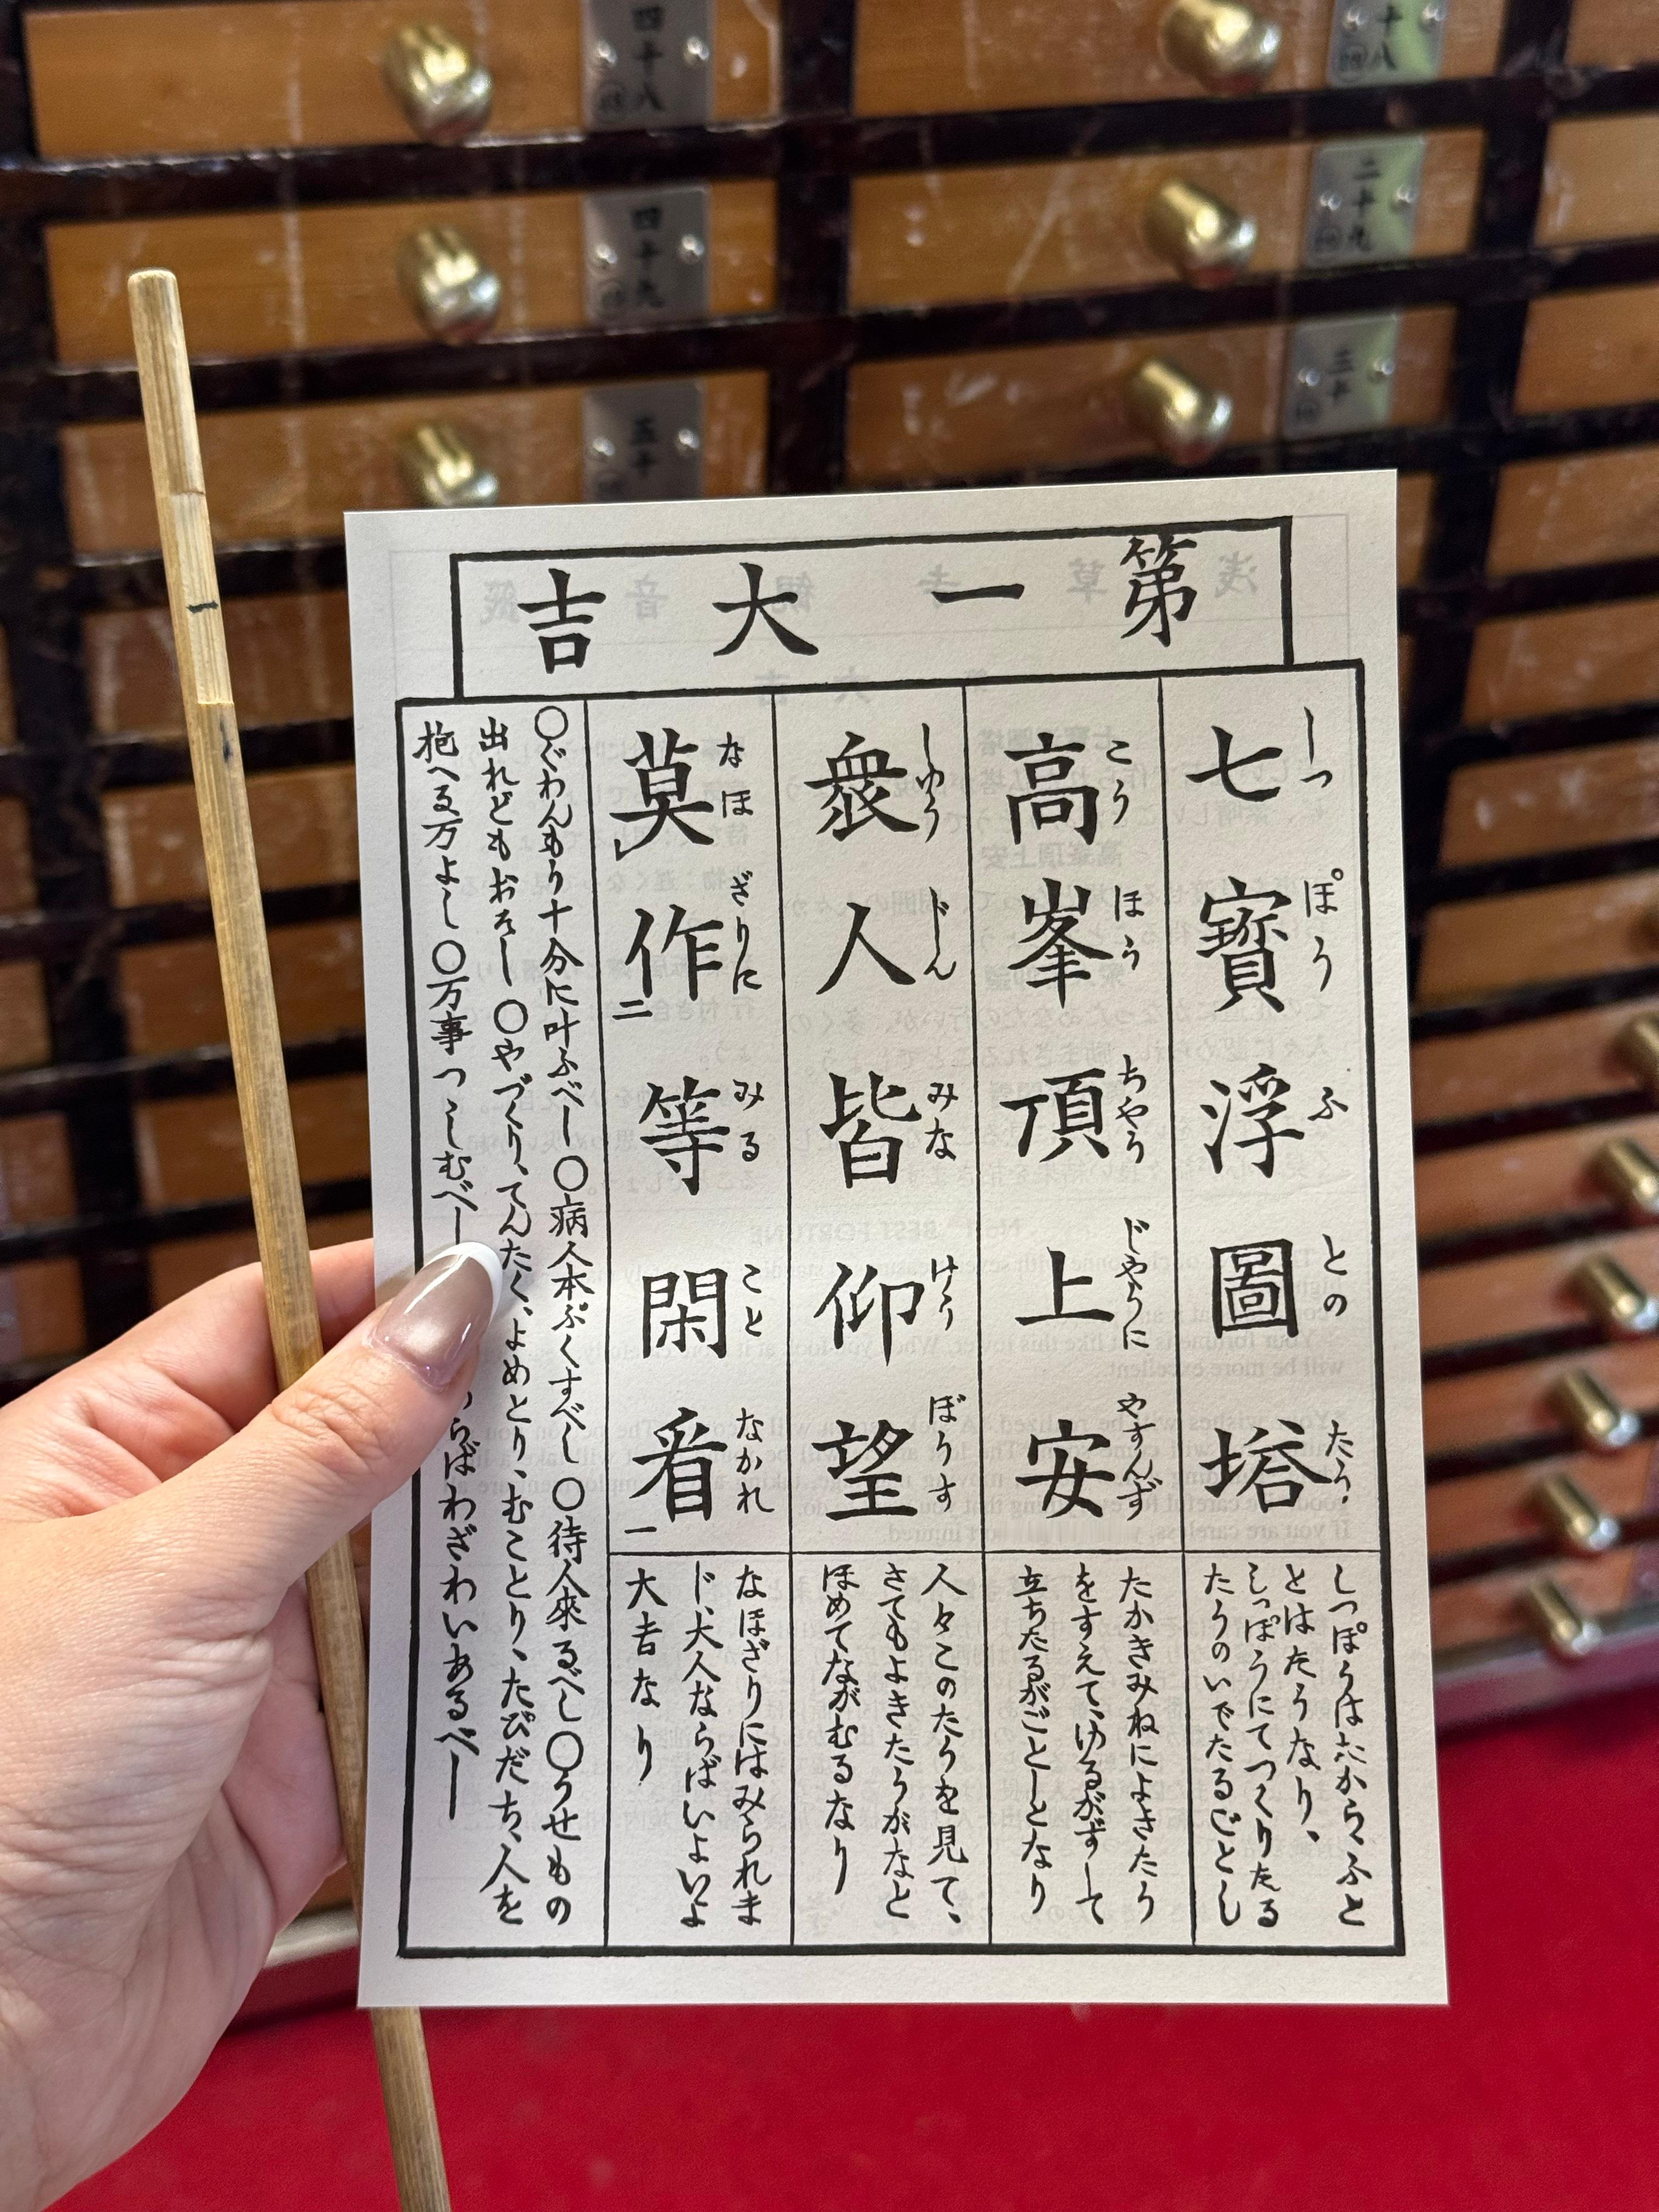 四十八
四十九
五十
十八
二十九
三十
第一大吉
七寶浮圖塔
しつぽうふとのたう
しつぽうはたから、ふと
とはたうなり、
しつぽうにてつくりたる
たうのいでたるごとし
高峯頂上安
こうほうちやうじやうにやすんず
たかきみねによきたう
をすえて、ゆるがずして
立ちたるがごとしとなり
衆人皆仰望
しゆうじんみなけうぼうす
人々このたうを見て、
さてもよきたうがなと
ほめてながむるなり
莫作等閑看
なほざりにみることなかれ
レ二一
なほざりにはみられま
じ、大人ならばいよいよ
大吉なり
〇ぐわんもう十分に叶ふべし〇病人本ぷくすべし〇待人來るべし〇うせもの
出れどもおそし〇やづくり、てんたく、よめとり、むことり、たびだち、人を
抱へる万よし〇万事つゝしむべし
らばわざわいあるべし
一